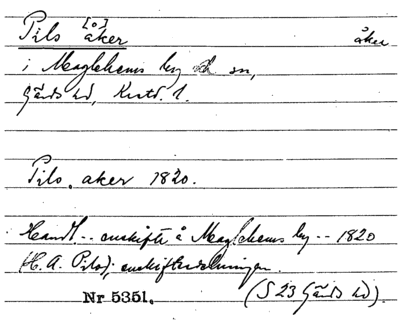 [o]
Pils åker åker
i Maglehems by och sn,
Gärds hd, Krstd. l.
Pils. aker 1820.
Handl.. enskifte å Maglehems by -- 1820
(H. A. Pils); enskiftesdelningen.
Nr 5351. (S 23 Gärds hd).